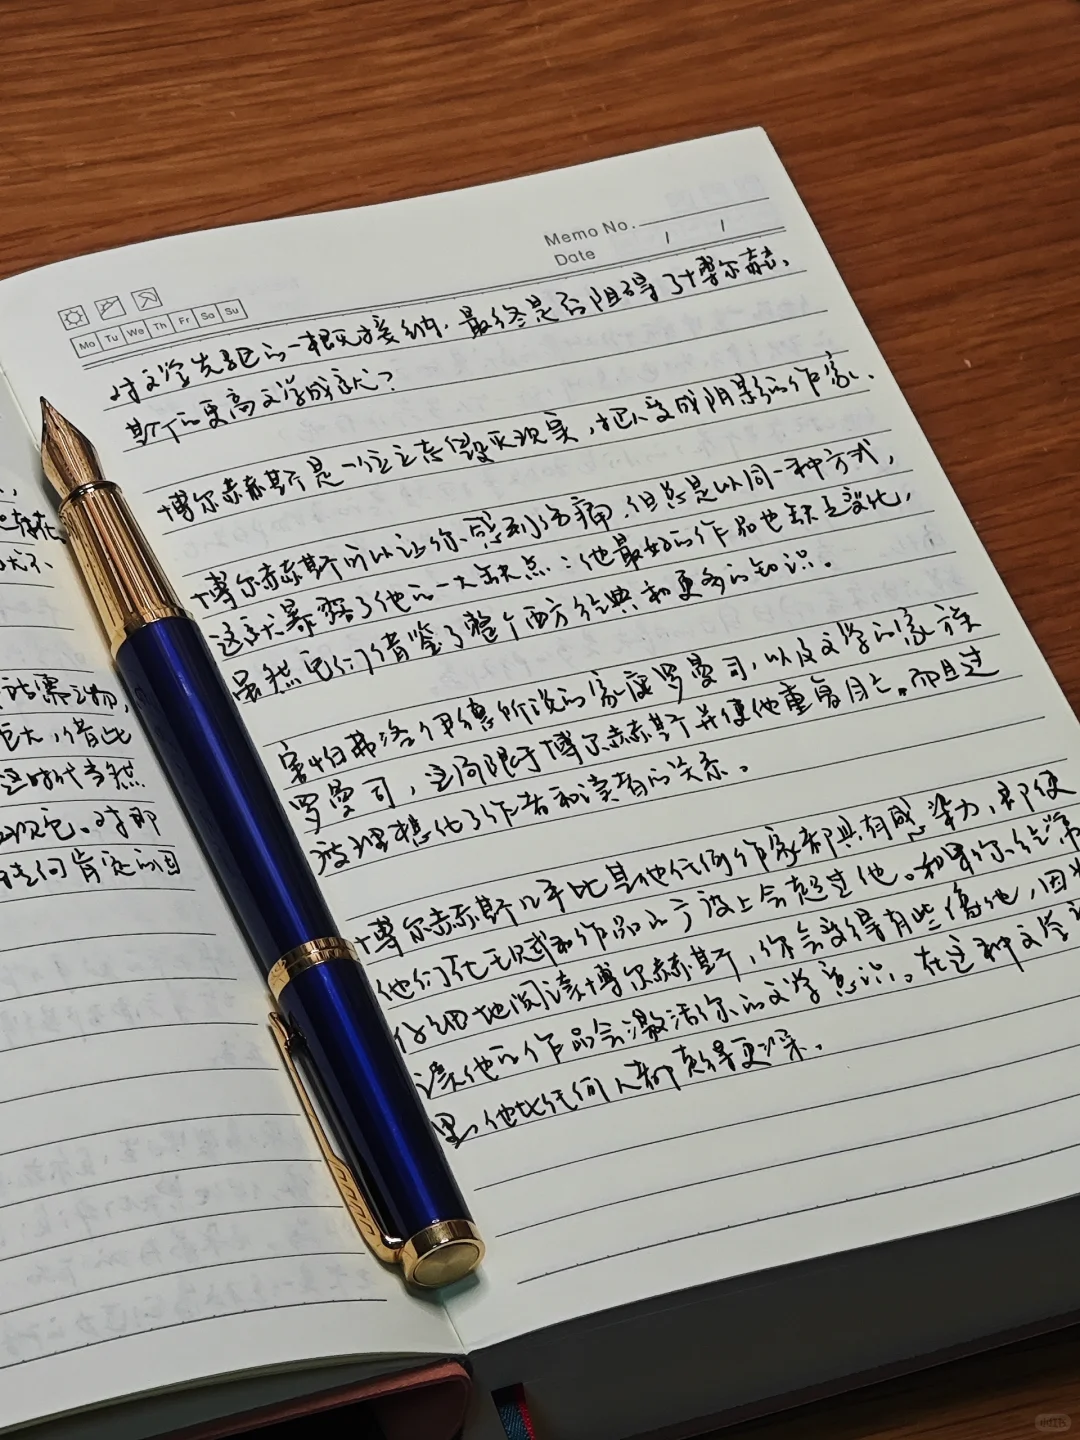 存在,
状不
话需之物,
巨大,借此
这时代当然
现它。对那
任何肯定的因
Memo No.
Date / /
Mo Tu We Th Fr Sa Su
对文学先驱的一概而接纳,最终是否阻碍了博尔赫
斯的更高文学成就?
博尔赫斯是一位立志毁灭现实,把人变成阴影的作家。
博尔赫斯可以让你感到伤痛,但总是以同一种方式,
这就暴露了他的一大缺点:他最好的作品也缺乏变化,
虽然它们借鉴了整个西方经典和更多的知识。
害怕弗洛伊德所说的家庭罗曼司,以及文学的家族
罗曼司,这局限于博尔赫斯并使他重复自己。而且过
度理想化了作者和读者的关系。
博尔赫斯几乎比其他任何作家都具有感染力,即使
他们在天赋和作品的广度上会超过他。如果你经常
仔细地阅读博尔赫斯,你会变得有些像他,因为
读他的作品会激活你的文学意识。在这种文学
里,他比任何人都走得更深。